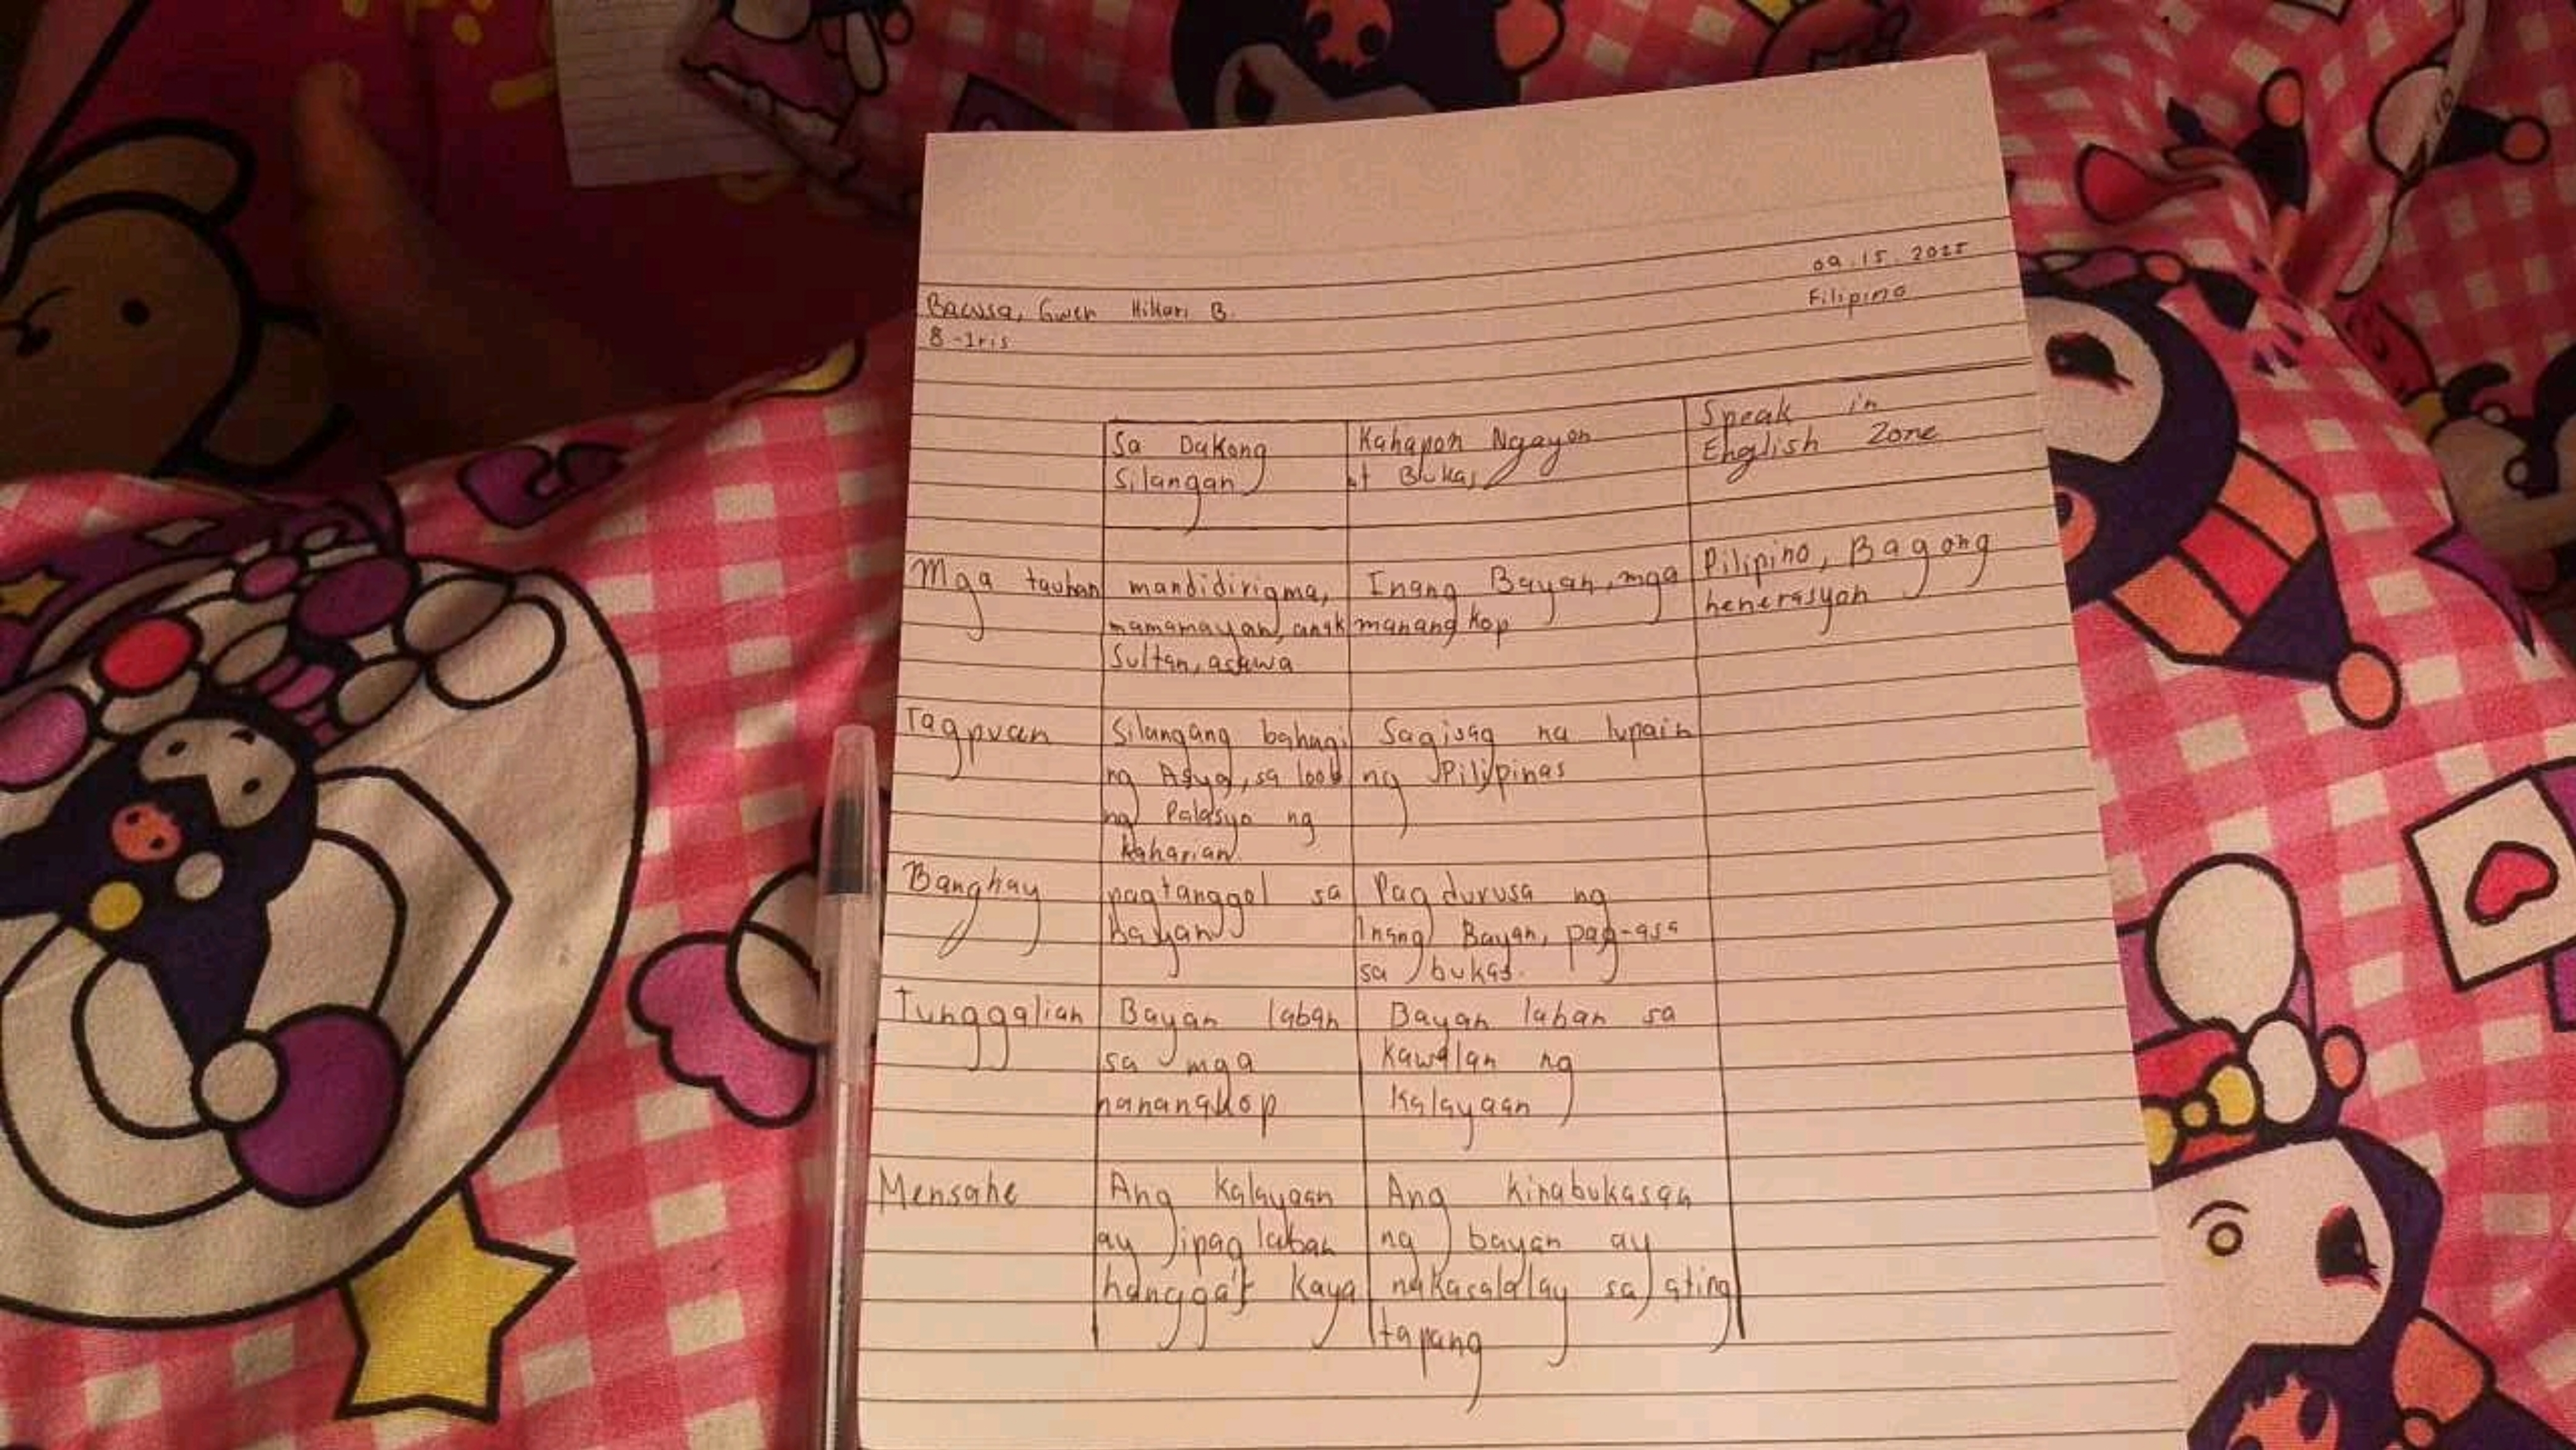 09.15.2025
Filipino
Bacusa, Gwen Hikari B.
8-Iris
Sa Dakong
Silangan
Kahapon Ngayon
at Bukas
Speak in
English Zone
Mga tauhan
mandidirigma,
mamamayan, anak
Sultan, asawa
Inang Bayan, mga
manang kop
Pilipino, Bagong
henerasyon
Tagpuan
Silangang bahagi
ng Asya, sa loob
ng Palasyo ng
kaharian
Sagisag na lupain
ng Pilipinas
Banghay
pagtanggol sa
bayan
Pagdurusa ng
Inang Bayan, pag-asa
sa bukas.
Tunggalian
Bayan laban
sa mga
nanangkop
Bayan laban sa
kawalan ng
kalayaan
Mensahe
Ang kalayaan
ay ipag laban
hangga't kaya
Ang kinabukasan
ng bayan ay
nakasalalay sa ating
tapang